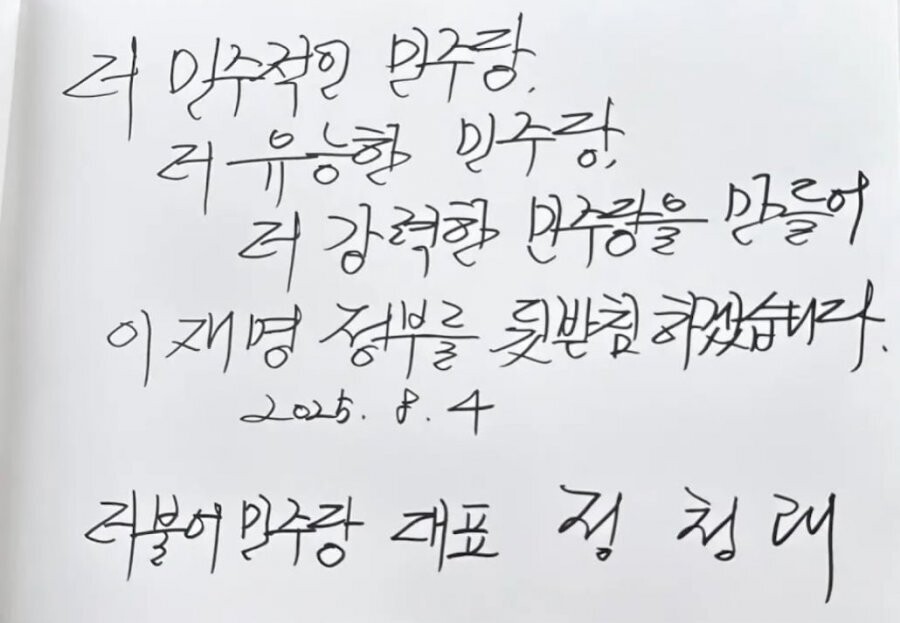 더 민주적인 민주당,
더 유능한 민주당,
더 강력한 민주당을 만들어
이재명 정부를 뒷받침 하겠습니다.
2025. 8. 4
더불어민주당 대표 정 청 래